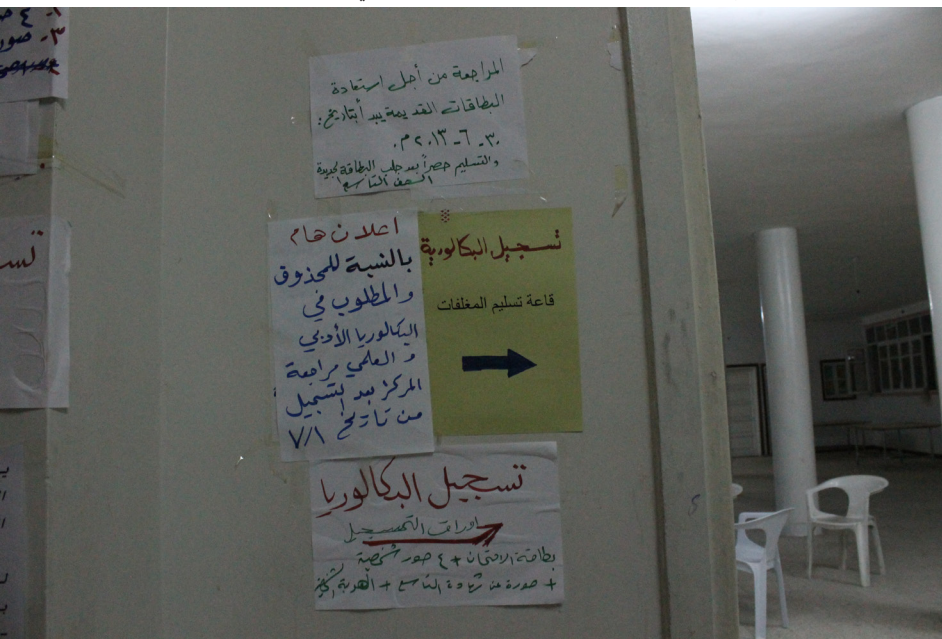 المراجعة من أجل استعادة
البطاقات القديمة يبدأ بتاريخ:
٣٠-٦-٢٠١٣م.
والتسليم حصراً بعد جلب البطاقة الجديدة
الصف التاسع
اعلان هام
بالنسبة للمحذوق
والمطلوب في
البكالوريا الأدبي
و العلمي مراجعة
المركز بعد التسجيل
من تاريخ ٧/١
تسجيل البكالورية
قاعة تسليم المغلفات
تسجيل البكالوريا
اوراق التسجيل
بطاقة الامتحان + ٤ صور شخصية
+ صورة عن شهادة التاسع + الهوية
٣- صور